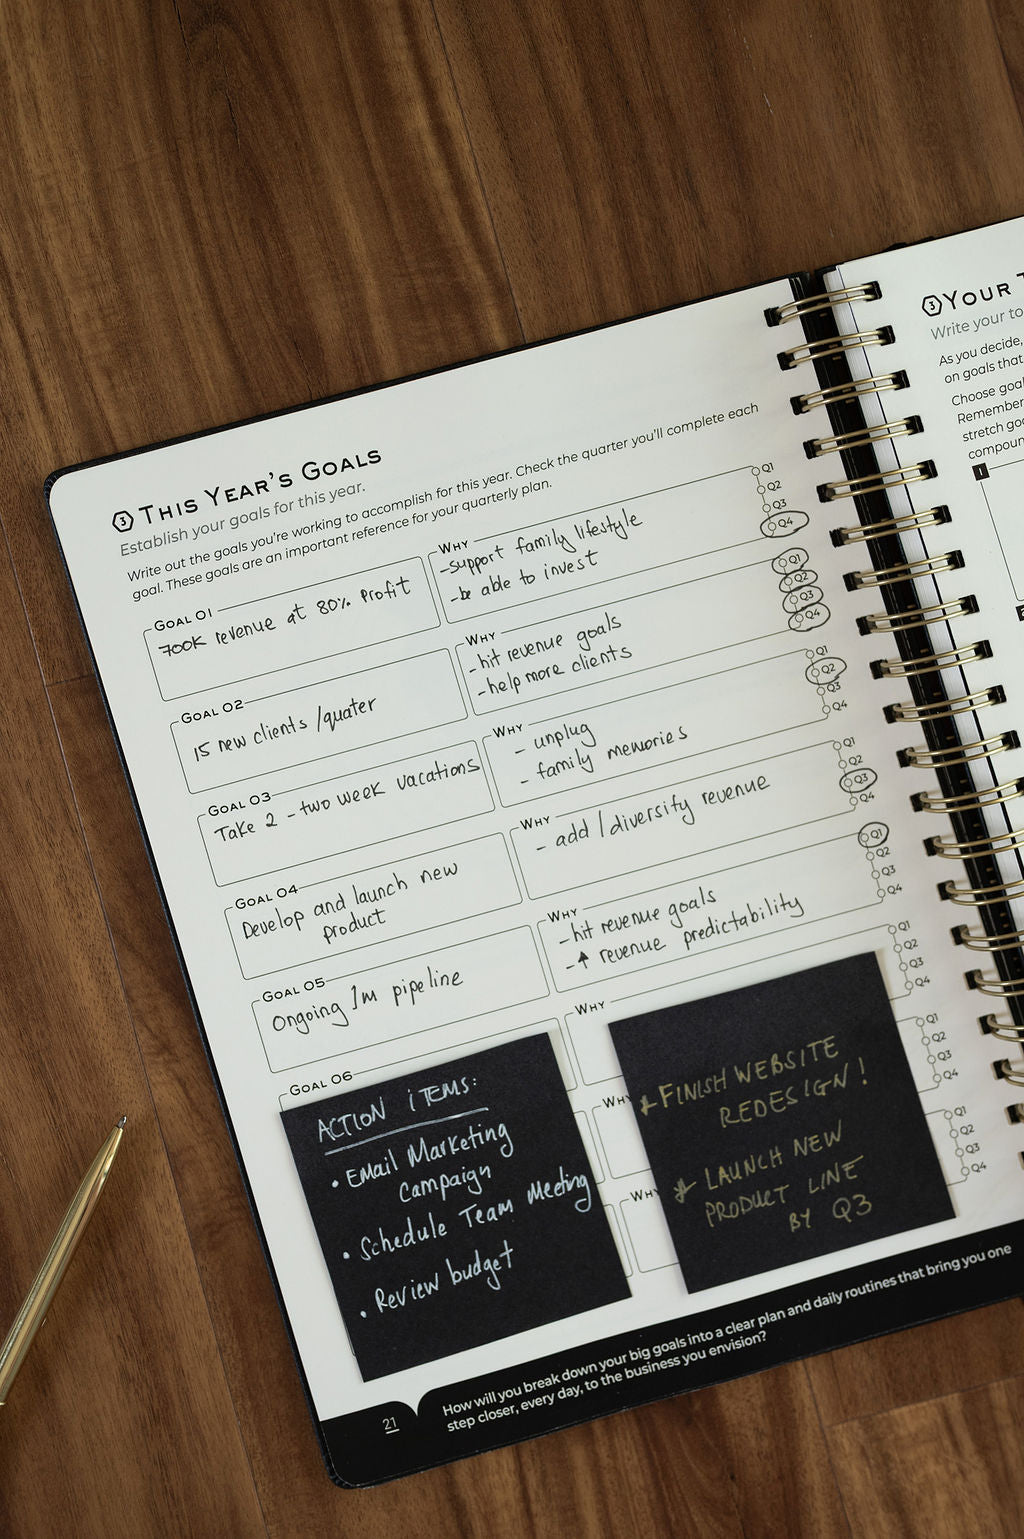 3 THIS YEAR'S GOALS
Establish your goals for this year.
Write out the goals you're working to accomplish for this year. Check the quarter you'll complete each
goal. These goals are an important reference for your quarterly plan.
GOAL 01
700K revenue at 80% profit
WHY
-support family lifestyle
-be able to invest
Q1
Q2
Q3
Q4
GOAL 02
15 new clients /quater
WHY
-hit revenue goals
-help more clients
Q1
Q2
Q3
Q4
GOAL 03
Take 2 - two week vacations
WHY
- unplug
- family memories
Q1
Q2
Q3
Q4
GOAL 04
Develop and launch new
product
WHY
- add/diversify revenue
Q1
Q2
Q3
Q4
GOAL 05
Ongoing 1m pipeline
WHY
-hit revenue goals
-↑ revenue predictability
Q1
Q2
Q3
Q4
GOAL 06
WHY
Q1
Q2
Q3
Q4
WHY
Q1
Q2
Q3
Q4
WHY
Q1
Q2
Q3
Q4
ACTION iTEMS:
• EMail Marketing
Campaign
• Schedule Team Meeting
• Review budget
FINISH WEBSITE
REDESIGN!
LAUNCH NEW
PRODUCT LINE
BY Q3
21
How will you break down your big goals into a clear plan and daily routines that bring you one
step closer, every day, to the business you envision?
3 YOUR T
Write your to
As you decide,
on goals that
Choose goal
Remember
stretch goa
compoun
1